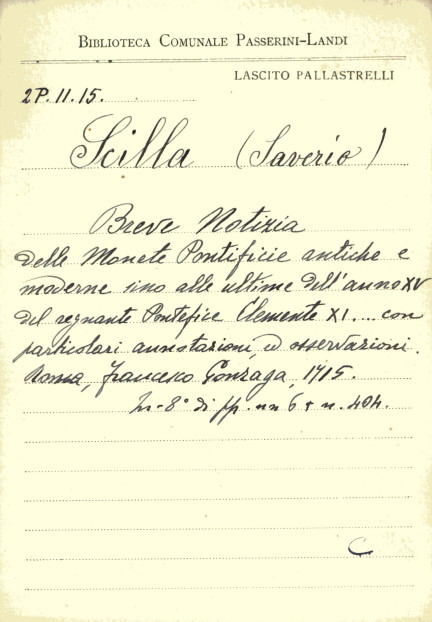 BIBLIOTECA COMUNALE PASSERINI-LANDI
LASCITO PALLASTRELLI
2P.11.15.
Scilla (Saverio)
Breve Notizia
delle Monete Pontificie antiche e
moderne sino alle ultime dell'anno XV
del regnante Pontefice Clemente XI.... con
particolari annotazioni, ed osservazioni.
Roma, Francesco Gonzaga, 1715.
In-8° di pp. nn 6 + n. 404.
C